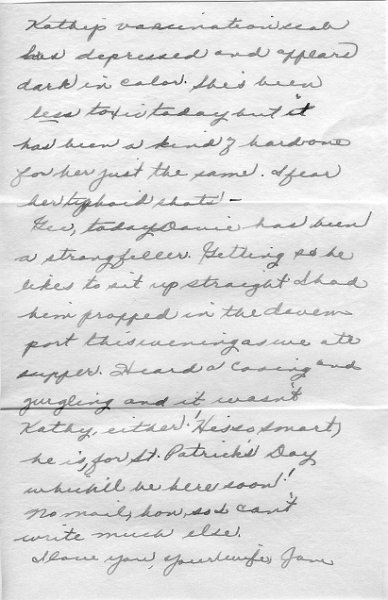 Kathy's vaccination scab
has depressed and appears
dark in color. She's been
less toxic today but it
has been a kind of hard one
for her just the same. I fear
her typhoid shots -
Gee, today Davie has been
a strong feller. Getting so he
likes to sit up straight I had
him propped in the daven
port this evening as we ate
supper. Heard a cooing and
gurgling and it wasn't
Kathy, either! He is so smart,
he is, for St. Patrick's Day
which'll be here soon!
No mail, hon, so I can't
write much else.
I love you, your wife, Jan